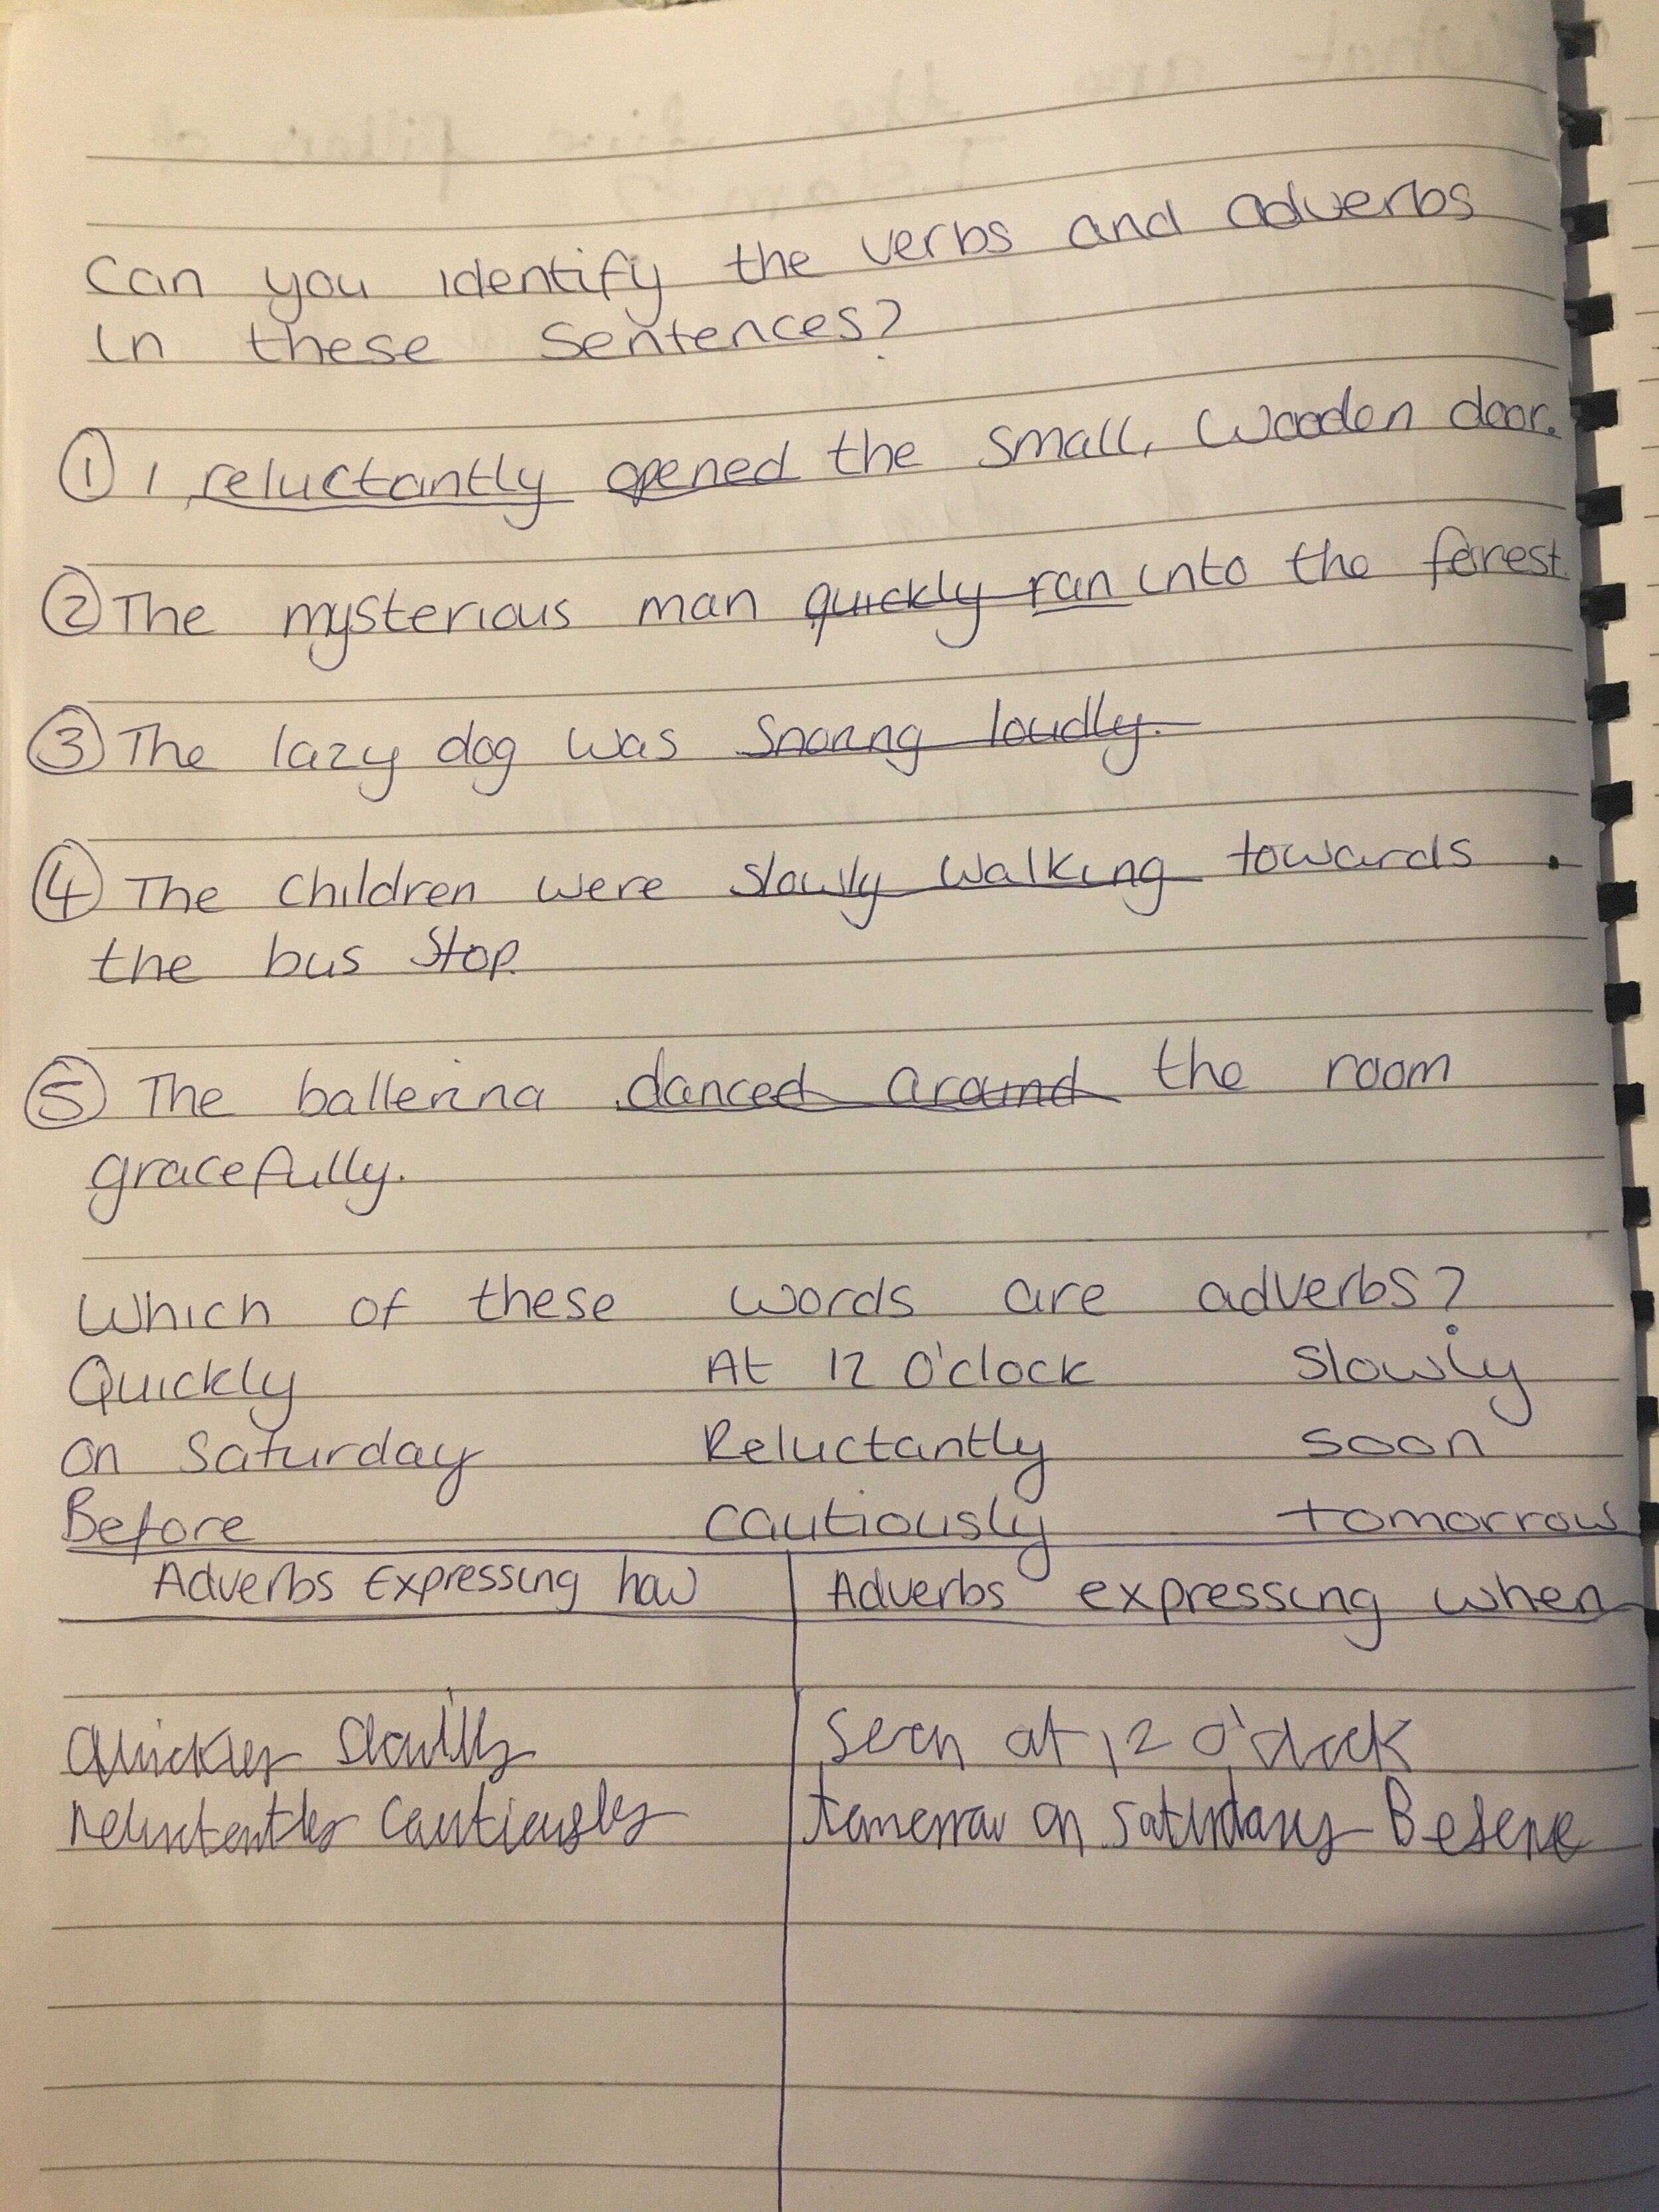 Can you identify the verbs and adverbs
in these sentences?
① I reluctantly opened the small, wooden door.
② The mysterious man quickly ran into the forest.
③ The lazy dog was snoring loudly.
④ The children were slowly walking towards
the bus stop.
⑤ The ballerina danced around the room
gracefully.
Which of these words are adverbs?
Quickly At 12 O'clock Slowly
On Saturday Reluctantly soon
Before cautiously tomorrow
Adverbs Expressing how Adverbs expressing when
Quickly Slowlly soon at 12 o'clock
Reluctently Cautiously tomorrow on saturday Before